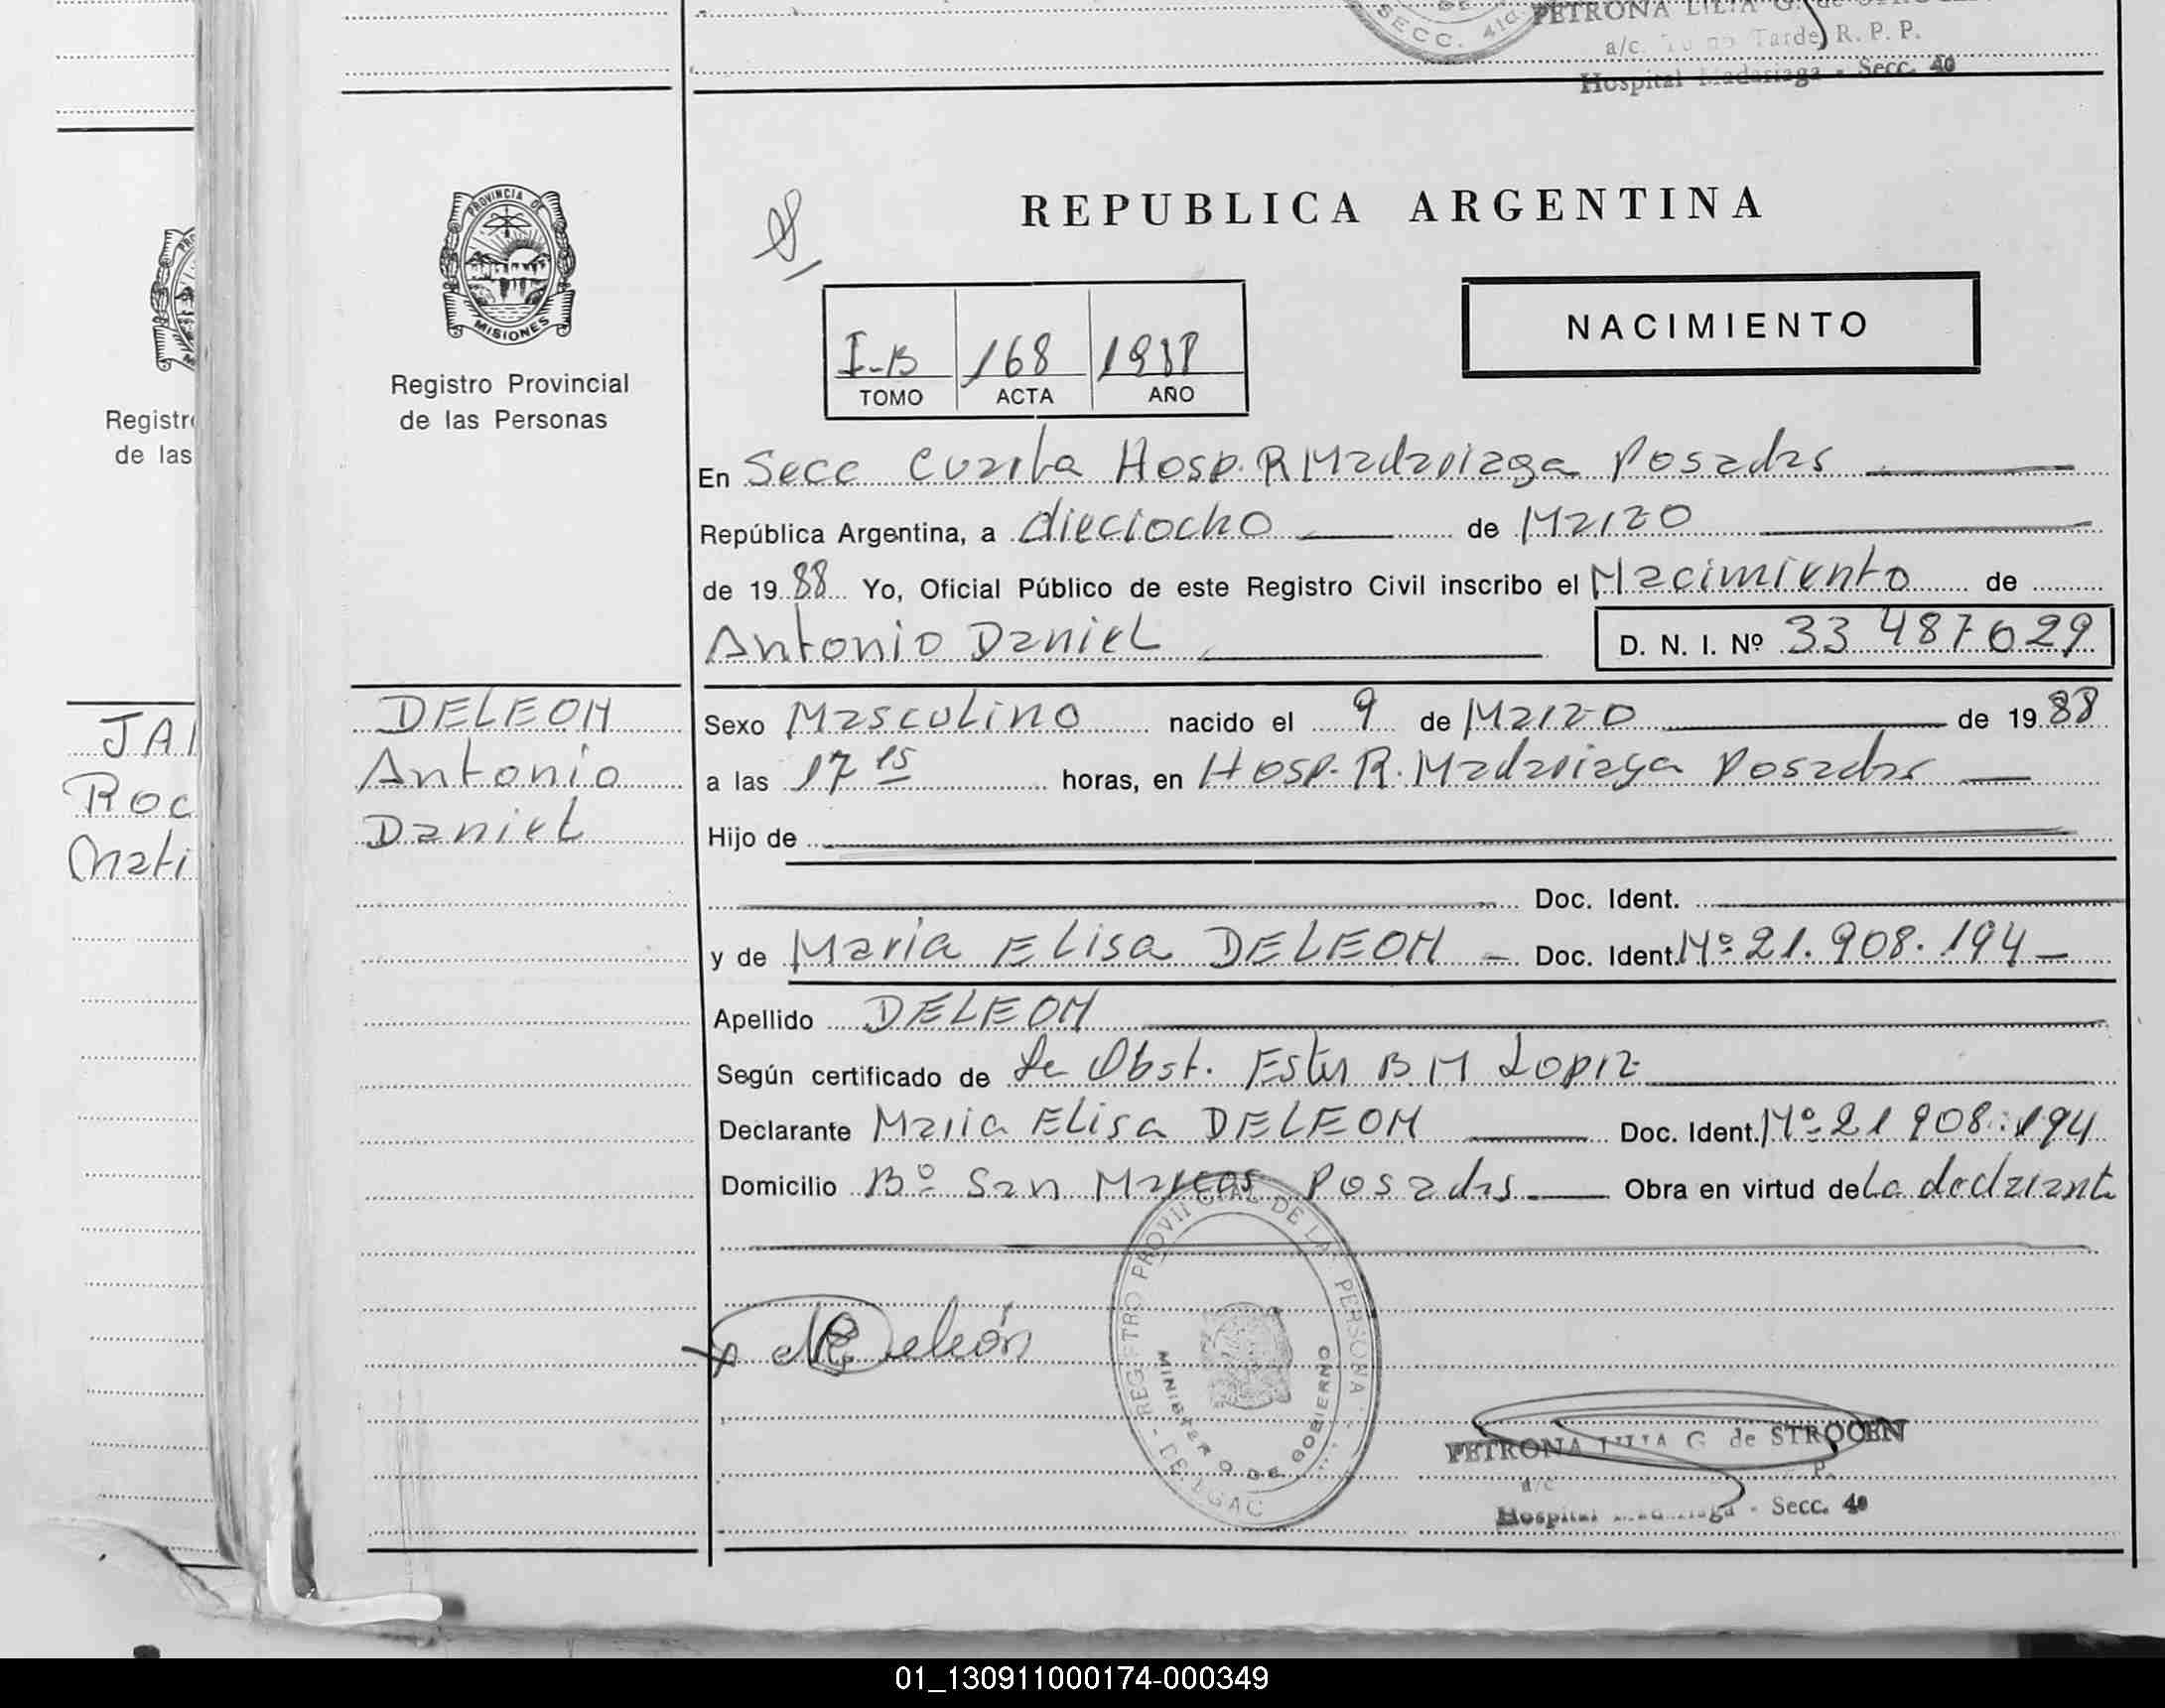 SECC. 4ta.
PETRONA LILIA G. de STROCEN
a/c. Turno Tarde R. P. P.
Hospital Madariaga - Secc. 40
PROVINCIA DE
MISIONES
Registro Provincial
de las Personas
REPUBLICA ARGENTINA
NACIMIENTO
I-B 168 1988
TOMO ACTA AÑO
En Secc Cuarta Hosp. R Madariaga Posadas
República Argentina, a dieciocho de Marzo
de 1988 Yo, Oficial Público de este Registro Civil inscribo el Nacimiento de
Antonio Daniel D. N. I. Nº 33 487029
Sexo Masculino nacido el 9 de Marzo de 1988
a las 17 15 horas, en Hosp. R. Madariaga Posadas
Hijo de
Doc. Ident.
y de Maria Elisa DELEON - Doc. Ident. Nº 21.908.194
Apellido DELEON
Según certificado de la Obst. Ester B M Lopez
Declarante Maria Elisa DELEON Doc. Ident. Nº 21 908.194
Domicilio Bº San Marcos Posadas Obra en virtud de La declarante
DELEON
Antonio
Daniel
Registr
de las
JA
Roc
Mati
Deleón
REGISTRO PROVINCIAL DE LA PERSONA
MINISTERIO DE GOBIERNO
PETRONA LILIA G. de STROCEN
a/c P.
Hospital Madariaga - Secc. 40
01_130911000174-000349